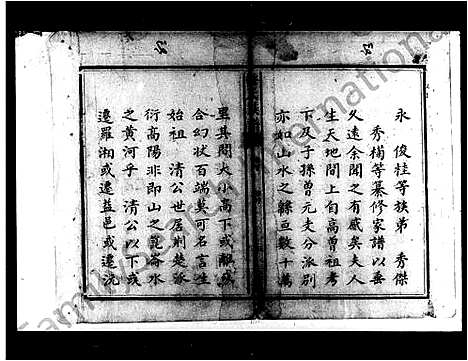 永 俊桂等族弟 秀傑
秀楠等纂修家譜以垂
久遠余聞之有感矣夫人
生天地間上自高曾祖考
下及子孫曾元支分派別
亦如山水之緜亘數十萬
里其間大小高下或離或
合幻狀百端莫可名言生
始祖 清公世居荆楚啟
衍高陽非即山之崑崙水
之黃河乎 清公以下或
遷羅湘或遷益邑或遷沅